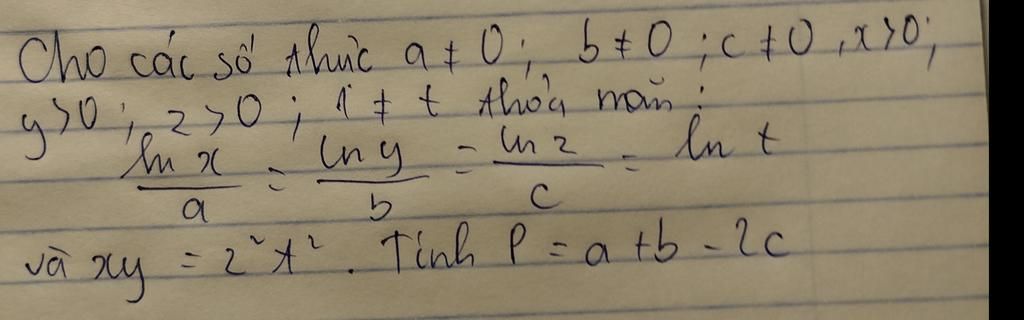 Cho các số thực a ≠ 0; b ≠ 0; c ≠ 0, x > 0;
y > 0; z > 0; 1 ≠ t thỏa mãn:
ln x / a = ln y / b = ln z / c = ln t
và xy = z² t². Tính P = a + b - 2c